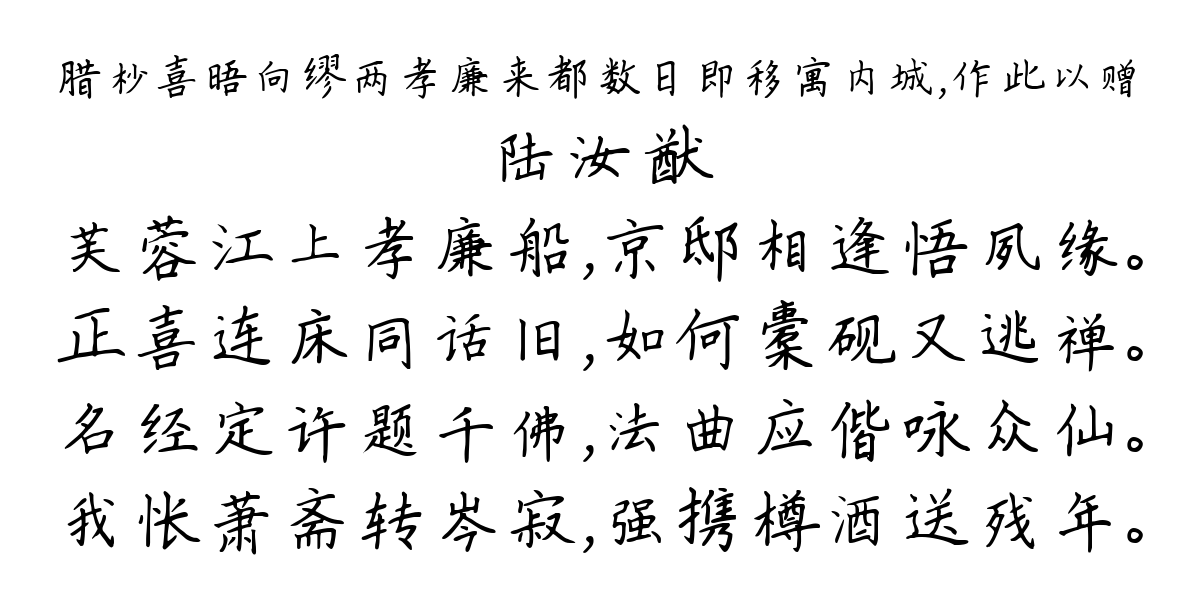 腊杪喜晤向缪两孝廉来都数日即移寓内城,作此以赠
陆汝猷
芙蓉江上孝廉船,京邸相逢悟夙缘。
正喜连床同话旧,如何橐砚又逃禅。
名经定许题千佛,法曲应偕咏众仙。
我怅萧斋转岑寂,强携樽酒送残年。